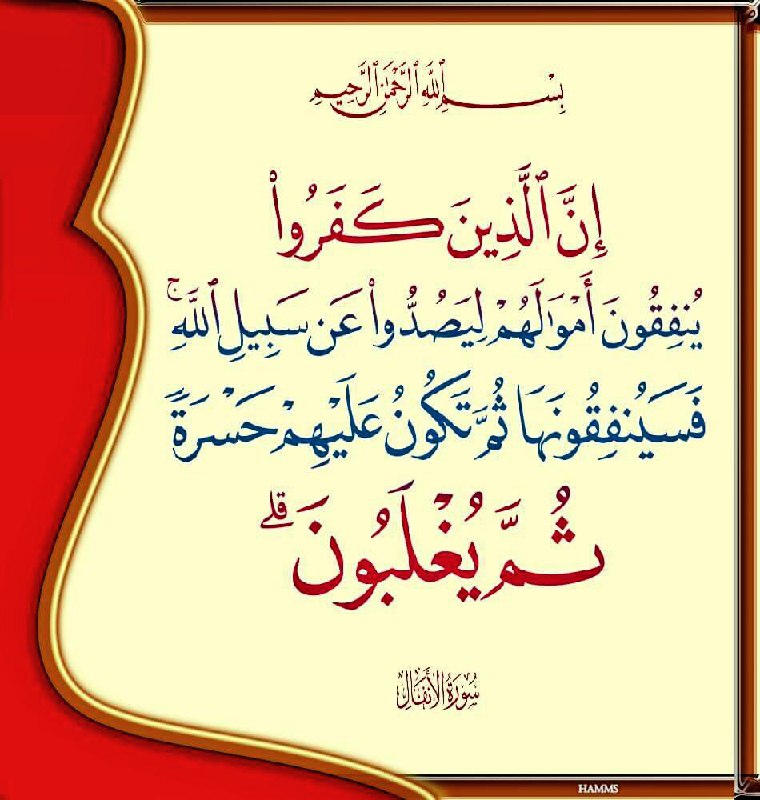 بِسْمِ ٱللَّهِ ٱلرَّحْمَٰنِ ٱلرَّحِيمِ
إِنَّ ٱلَّذِينَ كَفَرُوا۟
يُنفِقُونَ أَمْوَٰلَهُمْ لِيَصُدُّوا۟ عَن سَبِيلِ ٱللَّهِ ۚ
فَسَيُنفِقُونَهَا ثُمَّ تَكُونُ عَلَيْهِمْ حَسْرَةً
ثُمَّ يُغْلَبُونَ ۗ
سُورَةُ الأَنفَالِ
HAMMS